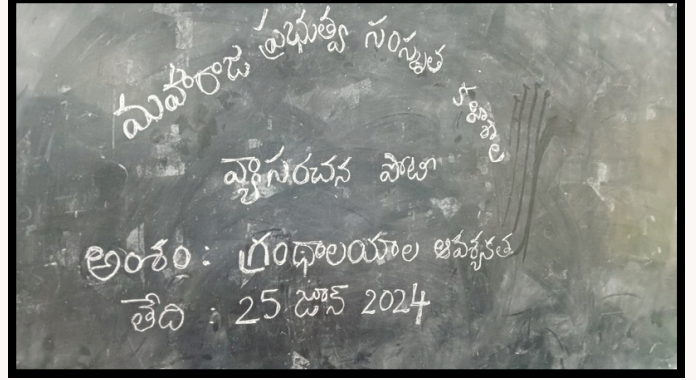 మహారాజ ప్రభుత్వ సంస్కృత
వ్యాసరచన పోటీ
అంశం : గ్రంథాలయాల ఆవశ్యకత
తేది : 25 జూన్ 2024